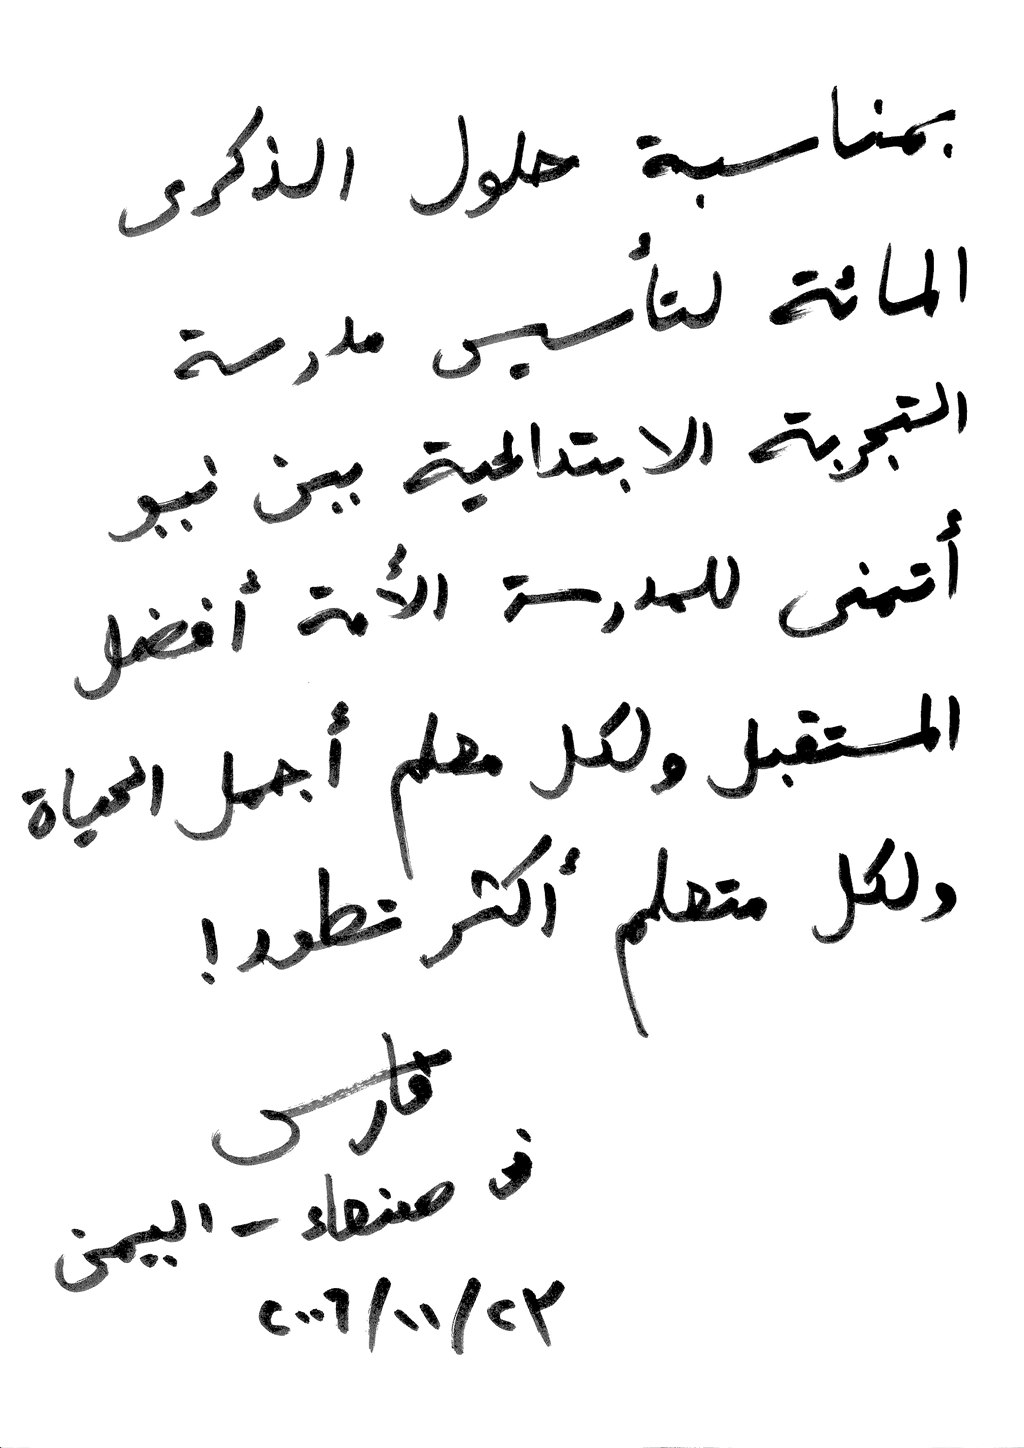 بمناسبة حلول الذكرى
المائة لتأسيس مدرسة
التجربة الابتدائية بين نبيو
أتمنى للمدرسة الأمة أفضل
المستقبل ولكل معلم أجمل الحياة
ولكل متعلم أكثر تطور!
فارس
في صنعاء - اليمن
٢٠٠٦/١١/٢٣